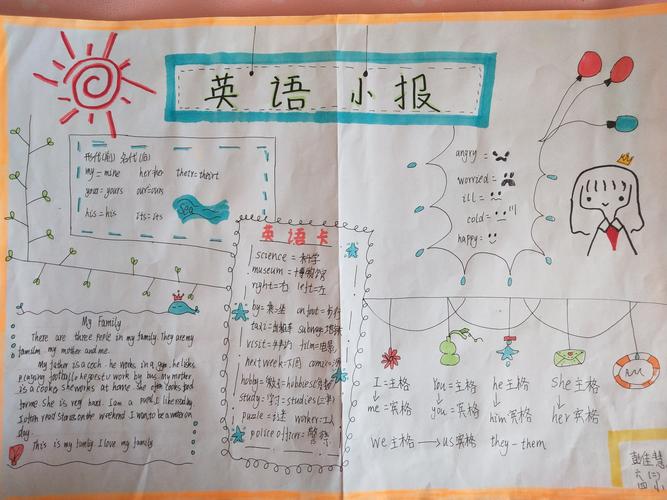 英语小报
形代(前) 名代(后)
my = mine her=her their=theirt
your=yours our=ours
his=his its=its
angry =
worried =
ill =
cold =
happy =
英语卡
science = 科学
museum = 博物馆
right=右 left=左
by= 乘坐 on foot=步行
taxi= subway
visit= film=电影
next week=下周 comic=
hobby= hobbies
study=学习=studies
puzzle=谜 worker=工人
police officer= 警察
My Family
There are three perple in my family. They are my
my mother and me.
My father is a coch. he works in a gym. he likes
playing football he goes to work by bus. my mother
is a cook. she works at home. She often cooks food
for me. She is very hard. I am a I like reading
I often read stories on the weekend I wan to be a on
day.
This is my family. I love my family
I=主格 You=主格 he主格 She主格
me=宾格 you=宾格 him宾格 her宾格
we主格 → us宾格 they-them
彭佳慧
六(二)
四小